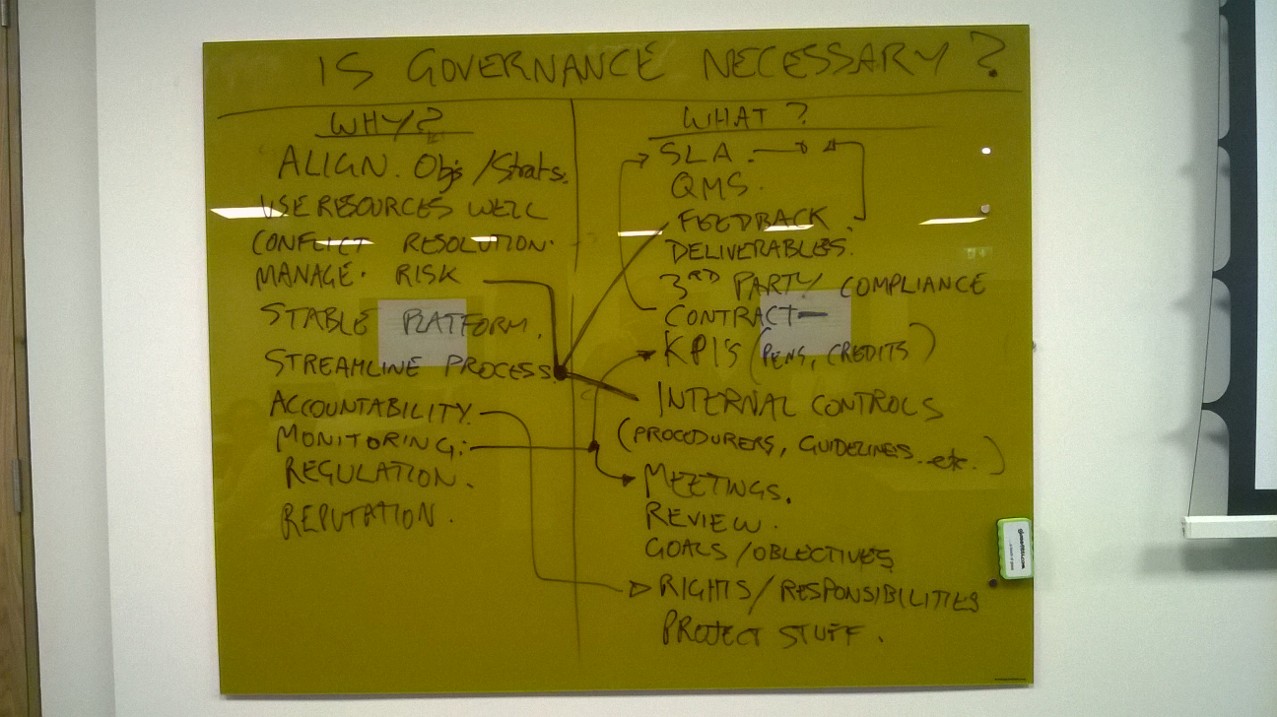 IS GOVERNANCE NECESSARY?
WHY?
ALIGN. Objs/Strats.
USE RESOURCES WELL
CONFLICT RESOLUTION.
MANAGE. RISK
STABLE PLATFORM.
STREAMLINE PROCESS.
ACCOUNTABILITY.
MONITORING:
REGULATION.
REPUTATION.
WHAT?
SLA.
QMS.
FEEDBACK.
DELIVERABLES.
3RD PARTY COMPLIANCE
CONTRACT
KPI'S (PENS, CREDITS)
INTERNAL CONTROLS
(PROCEDURERS, GUIDELINES...etc.)
MEETINGS.
REVIEW.
GOALS/OBLECTIVES
RIGHTS/RESPONSIBILITIES
PROJECT STUFF.